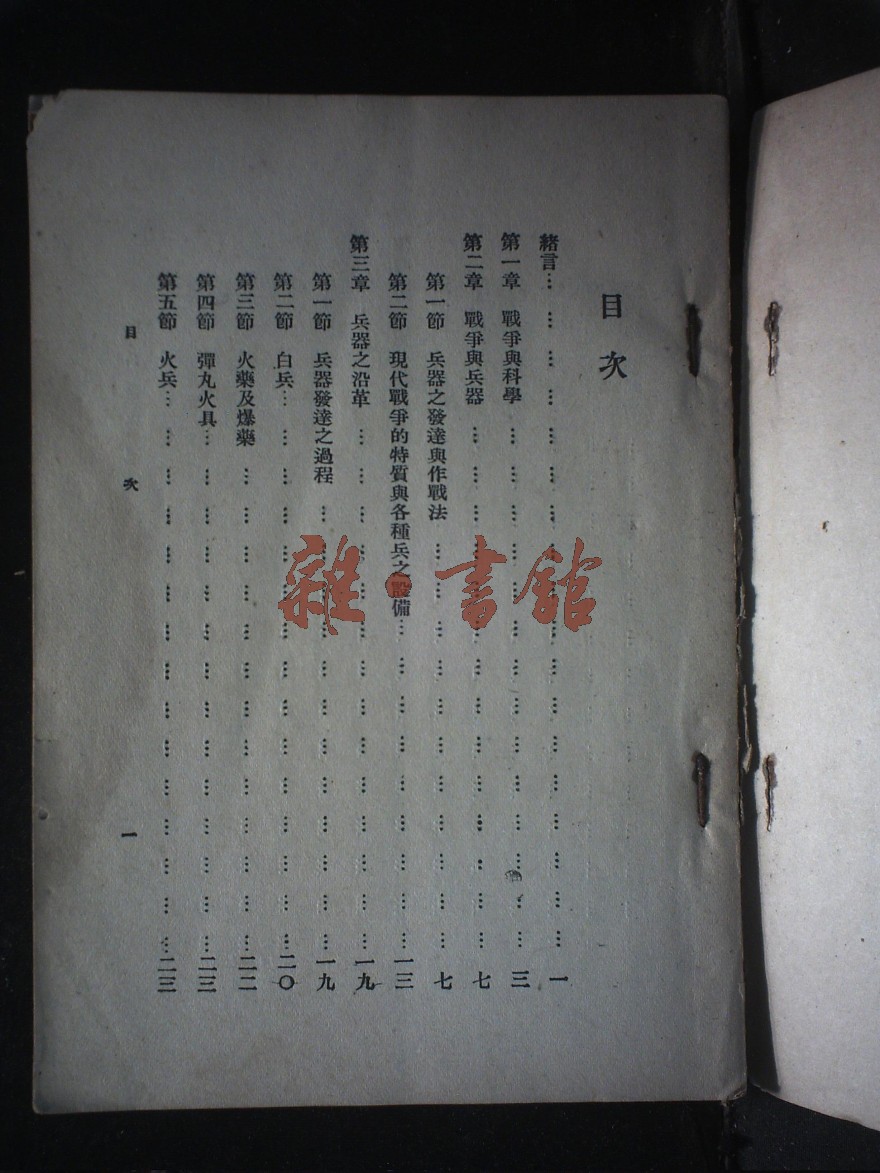 目次
緒言…………………………………一
第一章　戰爭與科學…………………………………三
第二章　戰爭與兵器…………………………………七
第一節　兵器之發達與作戰法…………………………………七
第二節　現代戰爭的特質與各種兵之設備…………………………………一三
第三章　兵器之沿革…………………………………一九
第一節　兵器發達之過程…………………………………一九
第二節　白兵…………………………………二〇
第三節　火藥及爆藥…………………………………二二
第四節　彈丸火具…………………………………二三
第五節　火兵…………………………………二三
目次
一
雜·書館